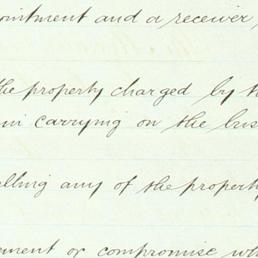 ointment and a receiver
the property charged by t
in carrying on the bus
elling any of the property
ement or compromise wh